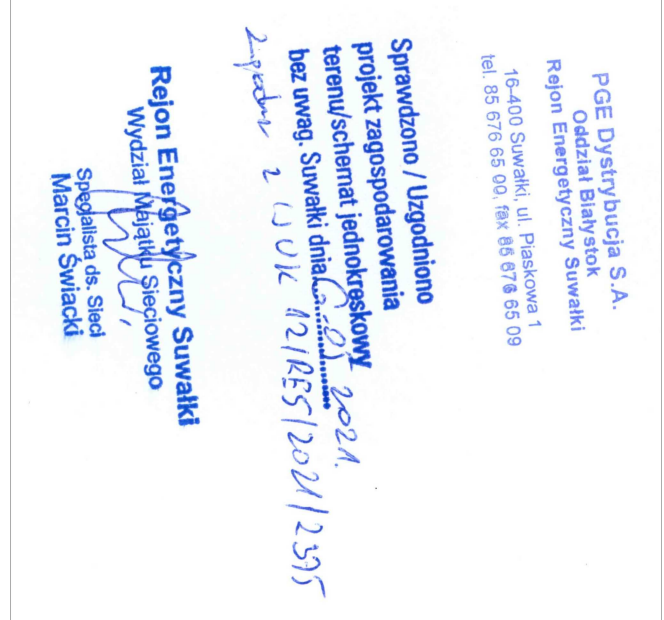 PGE Dystrybucja S.A.
Oddział Białystok
Rejon Energetyczny Suwałki
16-400 Suwałki, ul. Piaskowa 1
tel. 85 676 65 00, fax 85 676 65 09
Sprawdzono / Uzgodniono
projekt zagospodarowania
terenu/schemat jednokreskowy
bez uwag. Suwałki dnia 2021.
z WUK 12/RE5/2021/2395
Rejon Energetyczny Suwałki
Wydział Majątku Sieciowego
Specjalista ds. Sieci
Marcin Świacki